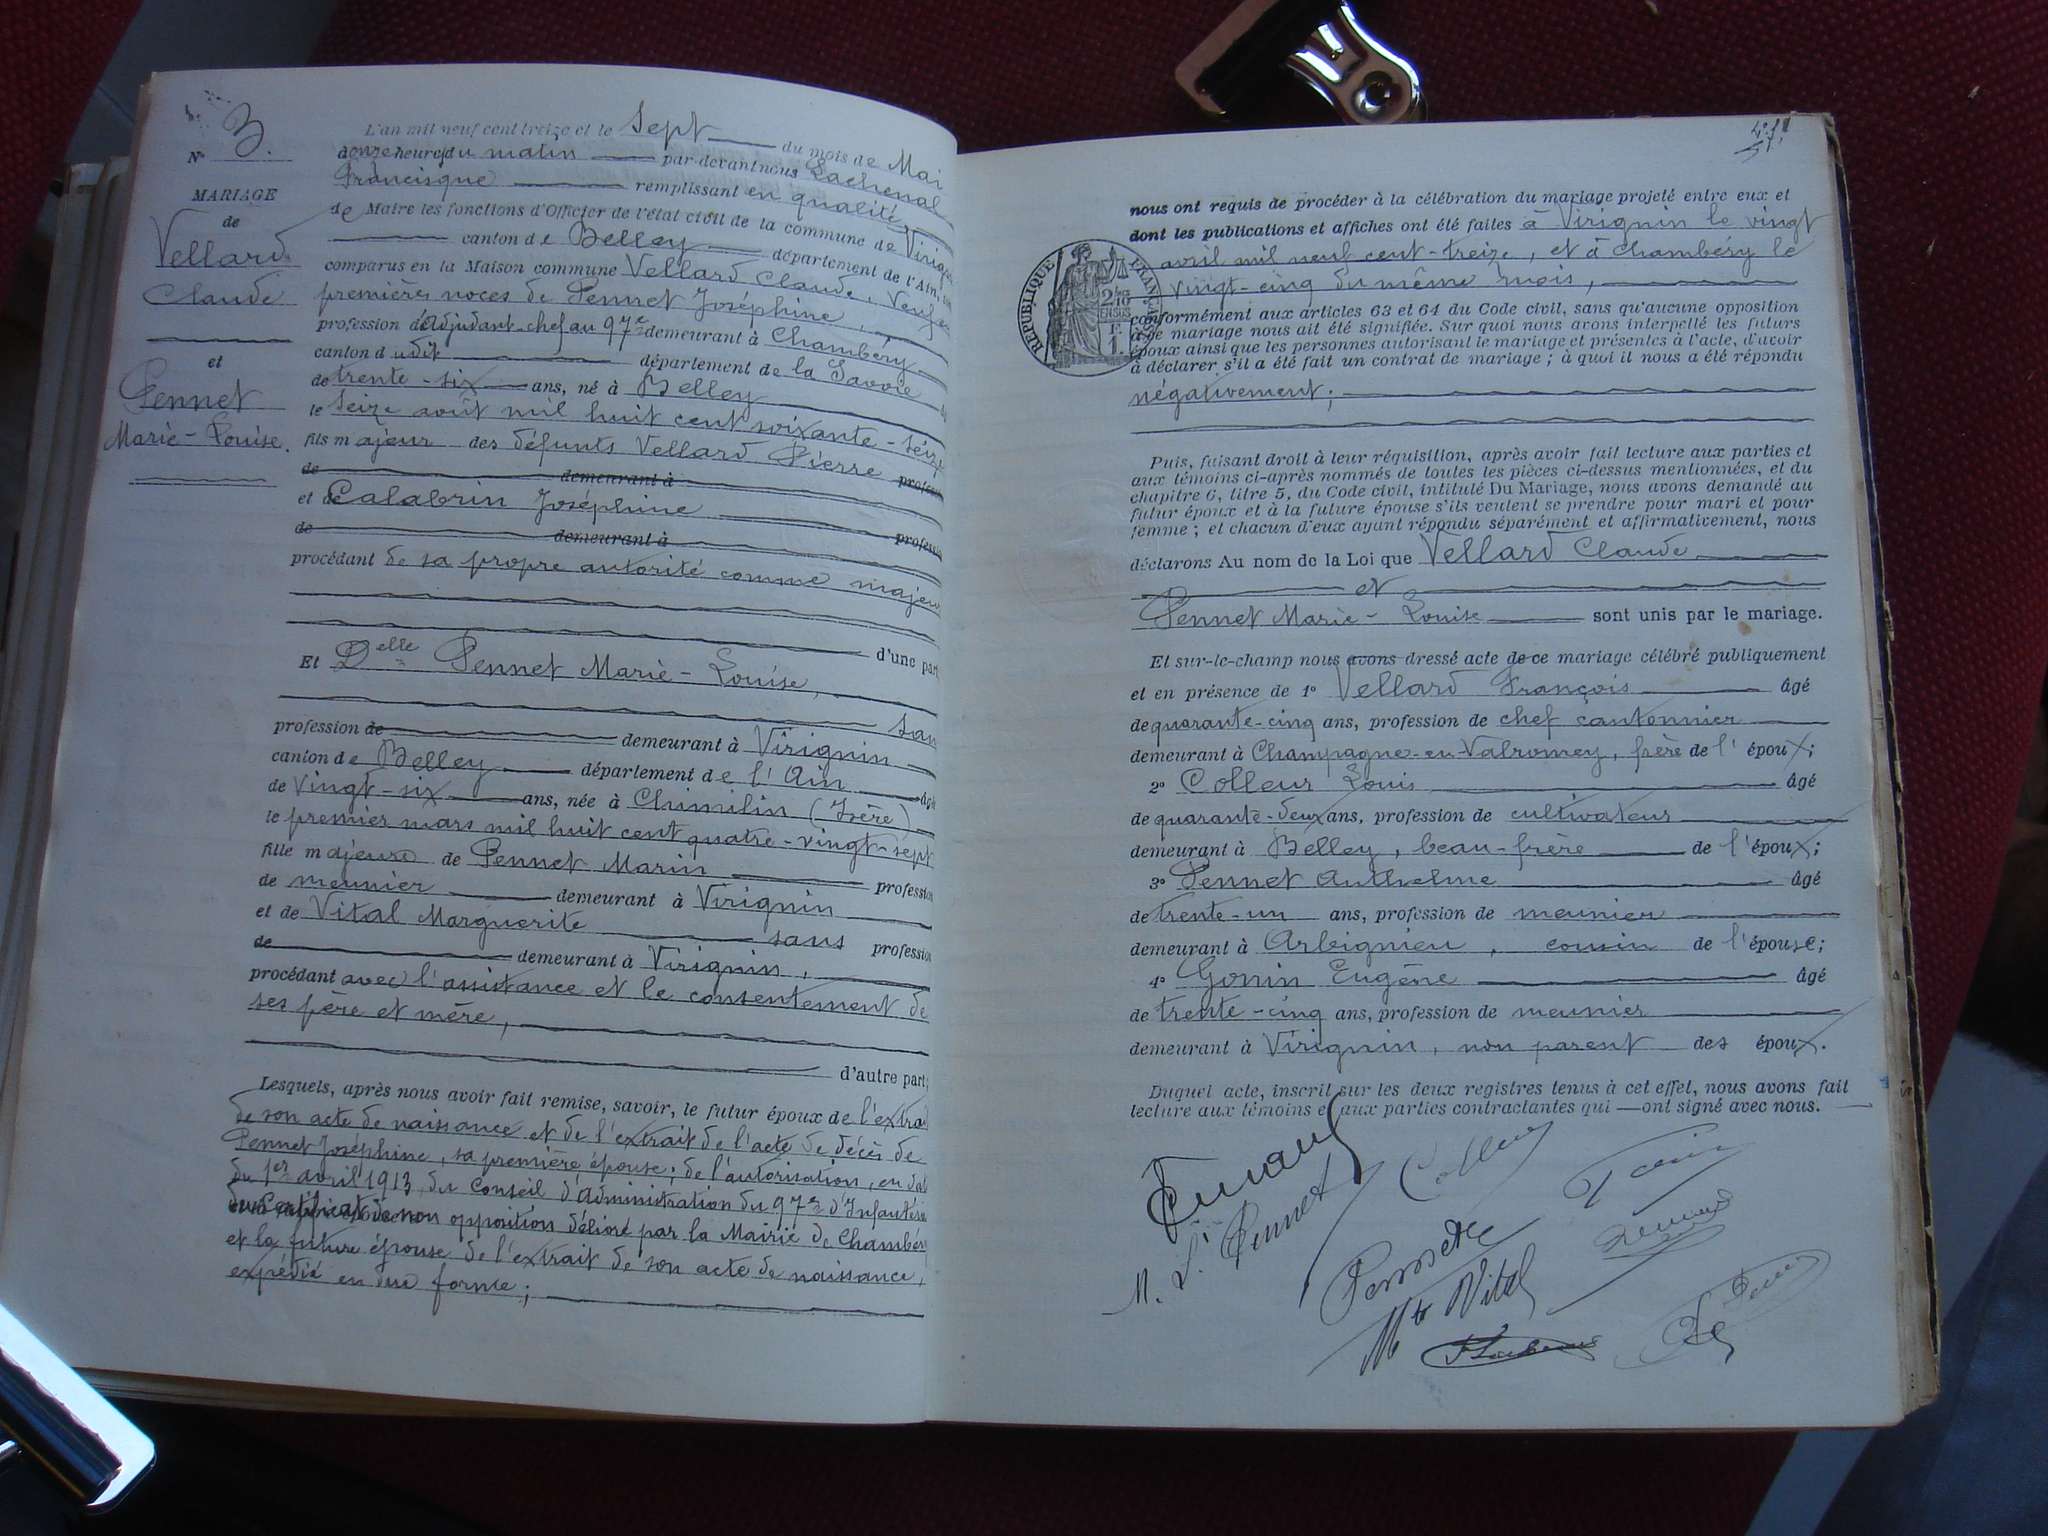 N° 3.
MARIAGE
de
Vellard
Claude
et
Pennet
Marie-Louise.
L'an mil neuf cent treize et le Sept du mois de Mai
heures du matin par-devant nous Lachenal
Francisque remplissant en qualité
de Maire les fonctions d'Officier de l'état civil de la commune de
canton de Belley département de l'Ain,
comparus en la Maison commune Vellard Claude, Veuf
premières noces de Pennet Joséphine,
profession d'Adjudant-chef au 97e demeurant à Chambéry
canton dudit département de la Savoie
de trente-six ans, né à Belley
le Seize août mil huit cent soixante-seize
fils majeur des défunts Vellard Pierre profession
de demeurant à
et de Calabrin Joséphine
de demeurant à profession
procédant de sa propre autorité comme majeur
d'une part
Et Delle Pennet Marie-Louise,
sans
profession de demeurant à Virignin
canton de Belley département de l'Ain âgée
de vingt-six ans, née à Chimilin (Isère)
le premier mars mil huit cent quatre-vingt-sept
fille majeure de Pennet Marin profession
de meunier demeurant à Virignin
et de Vital Marguerite sans profession
de demeurant à Virignin,
procédant avec l'assistance et le consentement de
ses père et mère,
d'autre part;
Lesquels, après nous avoir fait remise, savoir, le futur époux de l'extrait
de son acte de naissance et de l'extrait de l'acte de décès de
Pennet Joséphine, sa première épouse; de l'autorisation, en date
du 1er avril 1913, du Conseil d'Administration du 97e d'Infanterie
du Certificat de non opposition délivré par la Mairie de Chambéry
et la future épouse de l'extrait de son acte de naissance,
expédié en due forme;
nous ont requis de procéder à la célébration du mariage projeté entre eux et
dont les publications et affiches ont été faites à Virignin le vingt
avril mil neuf cent-treize, et à Chambéry le
vingt-cinq du même mois,
RÉPUBLIQUE FRANÇAISE
2/10 EN SUS
1 F.
conformément aux articles 63 et 64 du Code civil, sans qu'aucune opposition
à ce mariage nous ait été signifiée. Sur quoi nous avons interpellé les futurs
époux ainsi que les personnes autorisant le mariage et présentes à l'acte, d'avoir
à déclarer s'il a été fait un contrat de mariage; à quoi il nous a été répondu
négativement;
Puis, faisant droit à leur réquisition, après avoir fait lecture aux parties et
aux témoins ci-après nommés de toutes les pièces ci-dessus mentionnées, et du
chapitre 6, titre 5, du Code civil, intitulé Du Mariage, nous avons demandé au
futur époux et à la future épouse s'ils veulent se prendre pour mari et pour
femme; et chacun d'eux ayant répondu séparément et affirmativement, nous
déclarons Au nom de la Loi que Vellard Claude
et
Pennet Marie-Louise sont unis par le mariage.
Et sur-le-champ nous avons dressé acte de ce mariage célébré publiquement
et en présence de 1° Vellard François âgé
de quarante-cinq ans, profession de chef cantonnier
demeurant à Champagne-en-Valromey, frère de l'époux;
2° Colleur Louis âgé
de quarante-deux ans, profession de cultivateur
demeurant à Belley, beau-frère de l'époux;
3° Pennet Anthelme âgé
de trente-un ans, profession de meunier
demeurant à Arbignieu, cousin de l'épouse;
4° Gonin Eugène âgé
de trente-cinq ans, profession de meunier
demeurant à Virignin, non parent des époux.
Duquel acte, inscrit sur les deux registres tenus à cet effet, nous avons fait
lecture aux témoins et aux parties contractantes qui ont signé avec nous.
Colleur
M. L. Pennet
Mte Vital